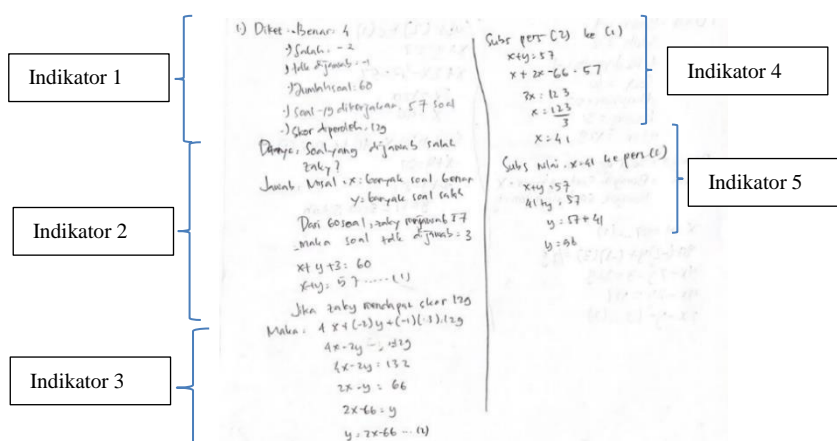 Indikator 1
Indikator 2
Indikator 3
1) Diket. Benar: 4
·) Salah: -2
·) tdk dijawab: -1
·) Jumlah soal: 60
·) Soal yg dikerjakan: 57 soal
·) Skor diperoleh: 129
Ditanya: Soal yang dijawab salah
zaky?
Jawab: Misal: x: banyak soal benar
y: banyak soal salah
Dari 60 soal, zaky menjawab 57
maka soal tdk dijawab = 3
x + y + 3 = 60
x + y = 57 ...... (1)
Jika zaky mendapat skor 129
Maka: 4x + (-2)y + (-1)(3) = 129
4x - 2y - 3 = 129
4x - 2y = 132
2x - y = 66
2x - 66 = y
y = 2x - 66 ... (2)
Subs pers (2) ke (1)
x + y = 57
x + 2x - 66 = 57
3x = 123
x = 123
3
x = 41
Subs nilai x = 41 ke pers (1)
x + y = 57
41 + y = 57
y = 57 + 41
y = 98
Indikator 4
Indikator 5